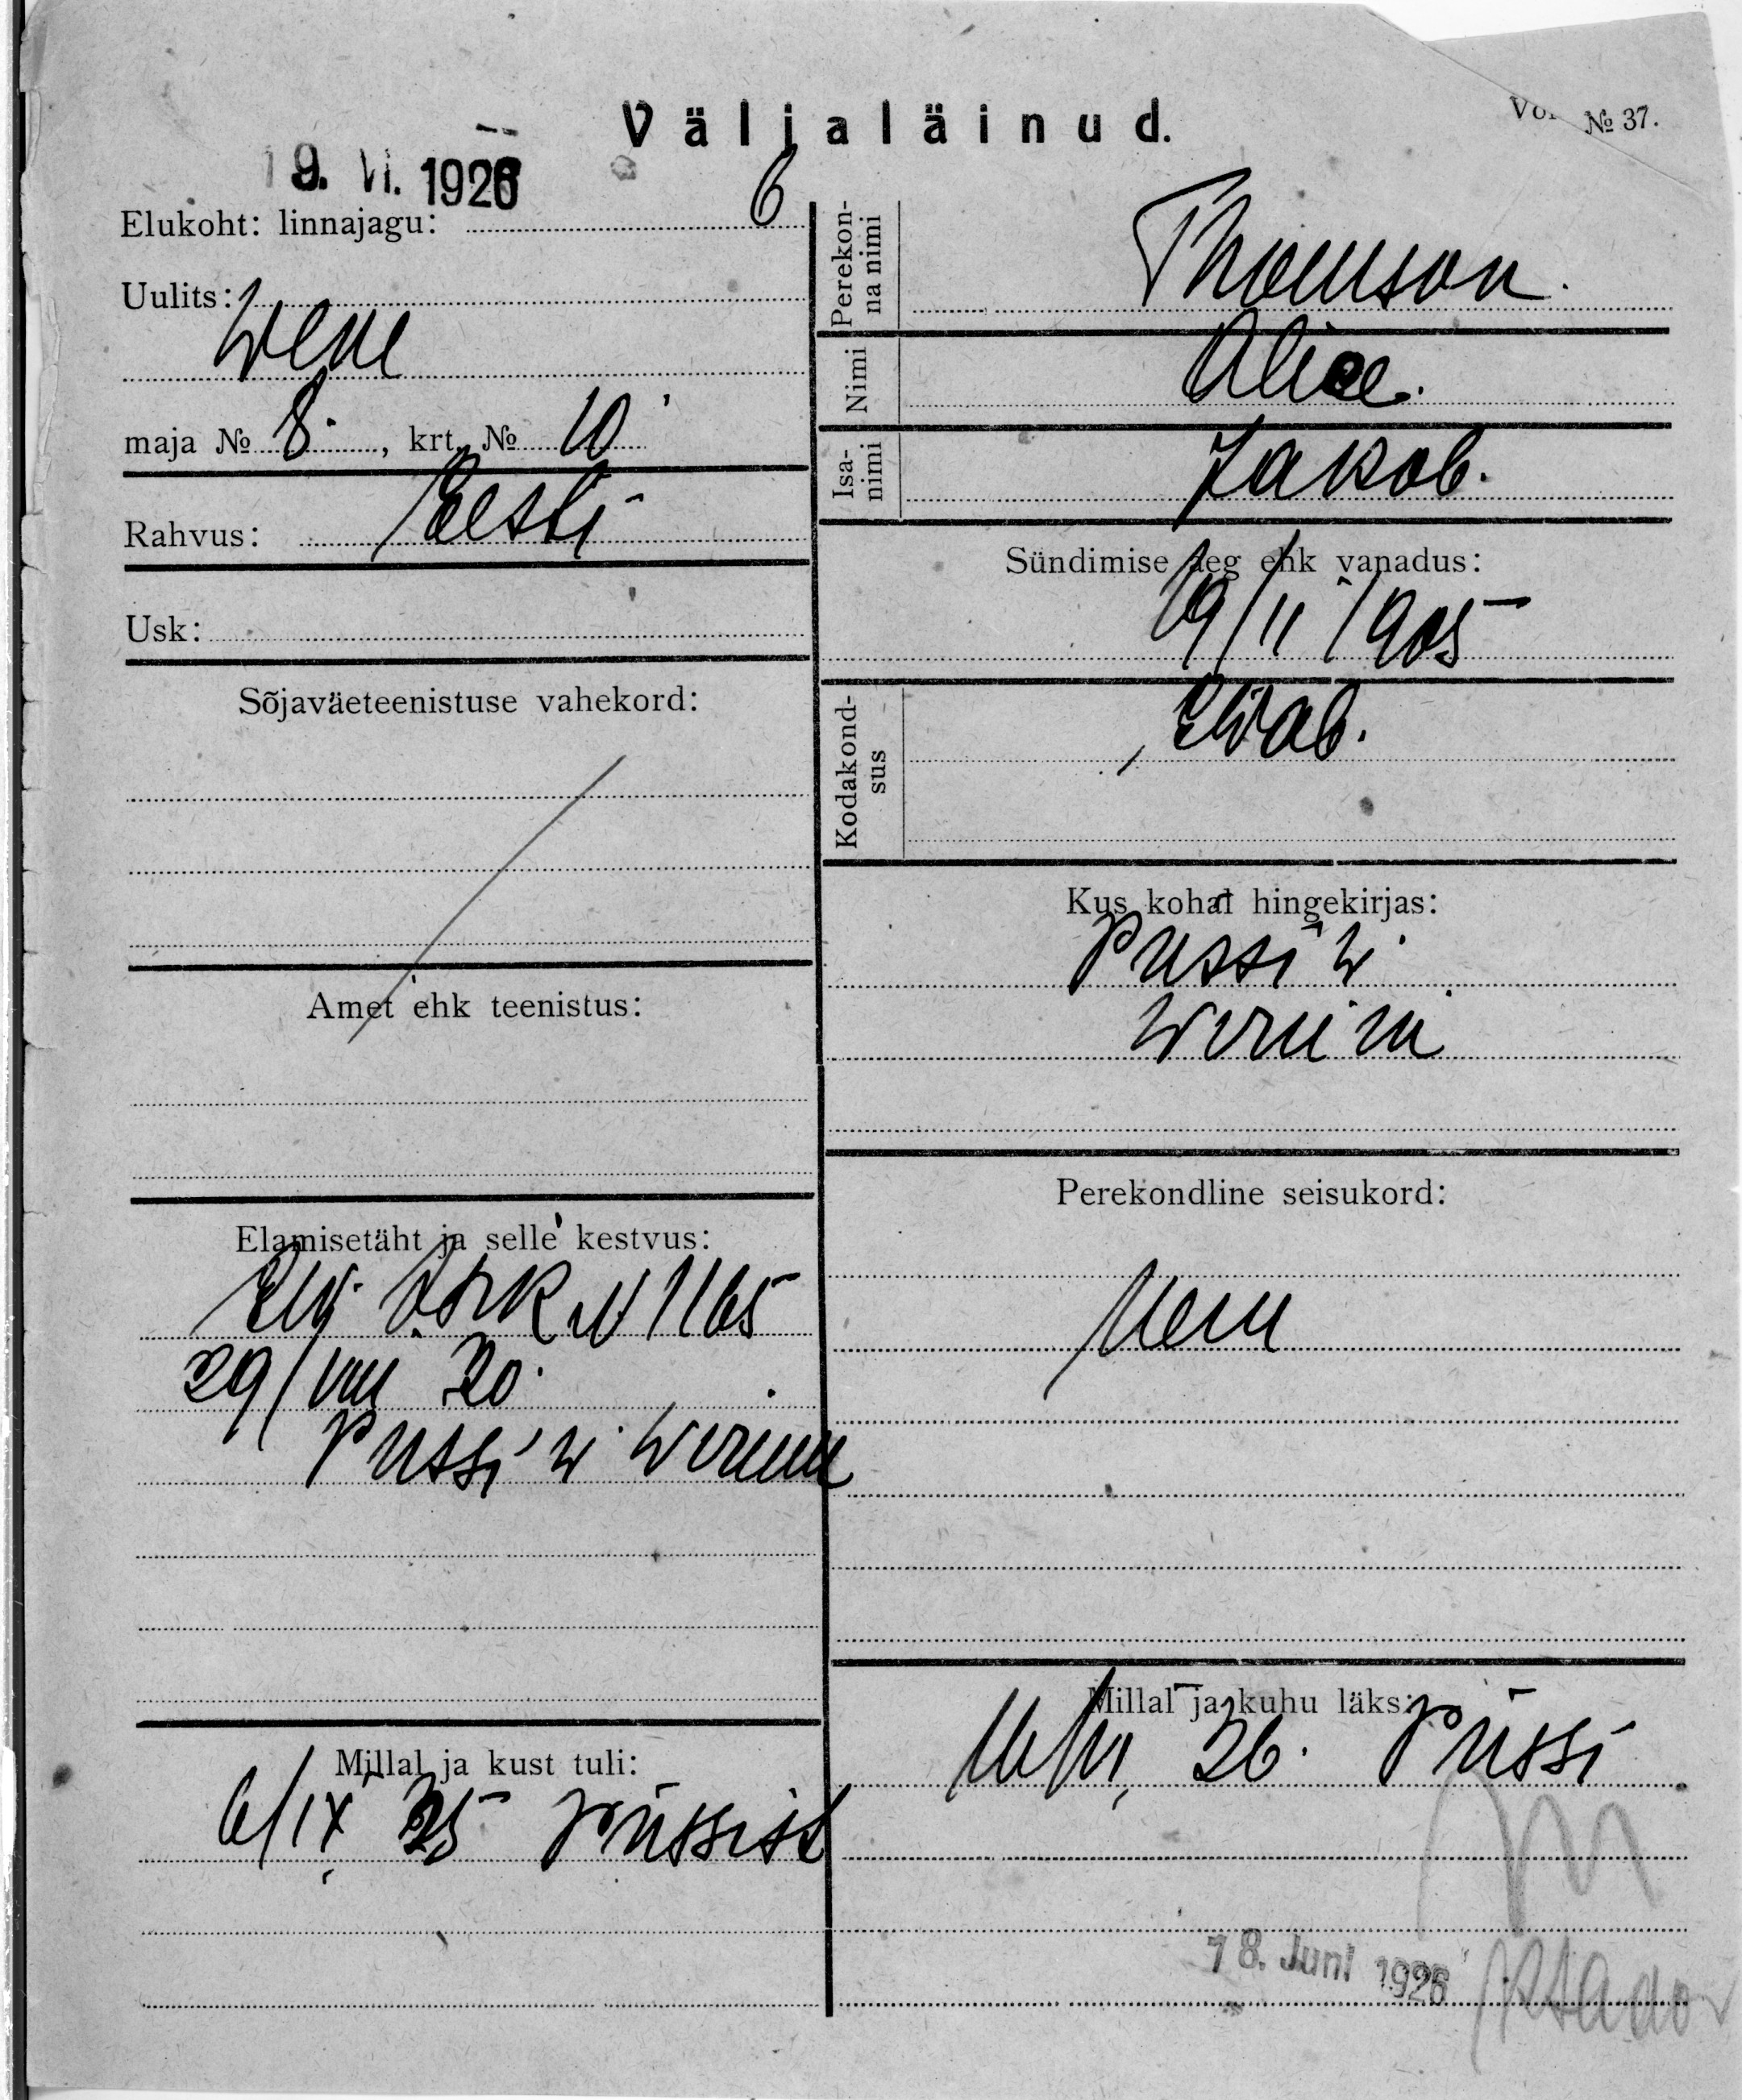 Väljaläinud.
№ 37.
19. VI. 1926
Elukoht: linnajagu: 6
Uulits:
Wene
maja № 8. , krt. № 10
Rahvus: Eesti
Usk:
Sõjaväeteenistuse vahekord:
Amet ehk teenistus:
Elamisetäht ja selle kestvus:
N 1165
29/VIII 20.
Püssi w
Millal ja kust tuli:
6/IX 25 Püssist
Perekonna nimi
Thomson.
Nimi
Alice.
Isanimi
Jakob.
Sündimise aeg ehk vanadus:
19/II 1905
Kodakondsus
E Wab.
Kus kohal hingekirjas:
Püssi w
Wirum
Perekondline seisukord:
Millal ja kuhu läks:
16/VI 26. Püssi
18. Juni 1926